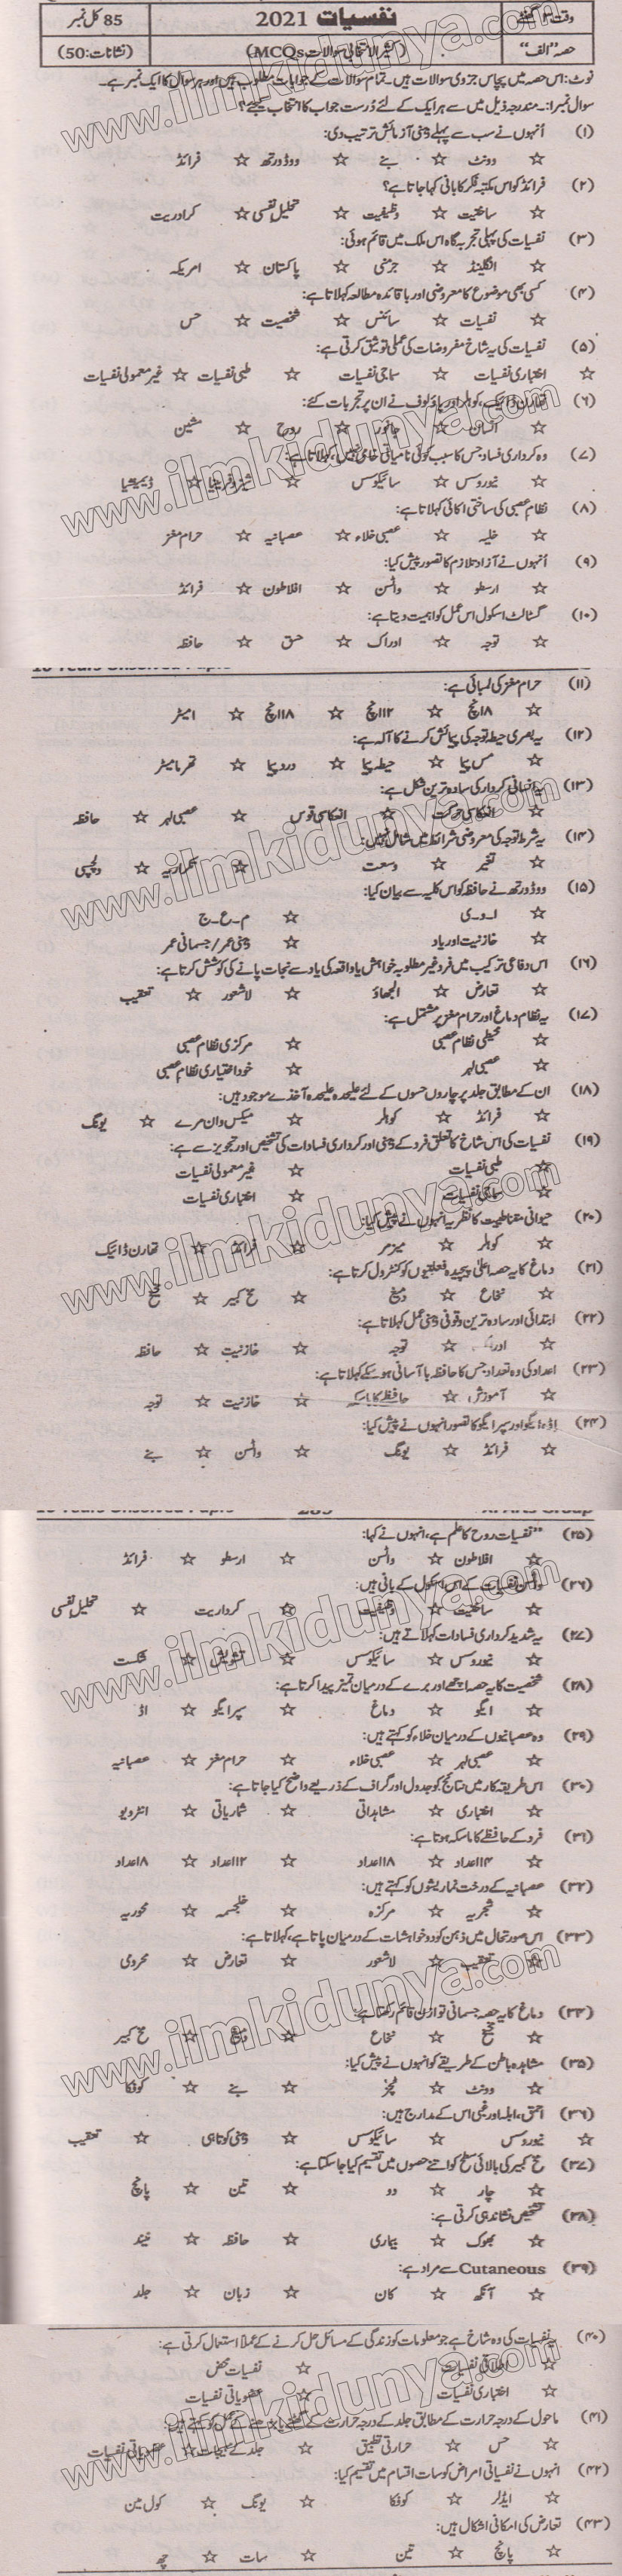 وقت ۳ گھنٹے
نفسیات 2021
85 کل نمبر
حصہ "الف"
(کثیر الانتخابی سوالات MCQs)
(نشانات:50)
نوٹ: اس حصہ میں پچاس جزوی سوالات ہیں۔ تمام سوالات کے جوابات مطلوب ہیں اور ہر سوال کا ایک نمبر ہے۔
سوال نمبر ا:۔ مندرجہ ذیل میں سے ہر ایک کے لئے درست جواب کا انتخاب کیجئے؟
(۱) اُنہوں نے سب سے پہلے ذہنی آزمائش ترتیب دی:
☆ وونٹ ☆ بنے ☆ ووڈورتھ ☆ فرائڈ
(۲) فرائڈ کو اس مکتبہ فکر کا بانی کہا جاتا ہے؟
☆ ساختیت ☆ وظیفیت ☆ تحلیل نفسی ☆ کرداریت
(۳) نفسیات کی پہلی تجربہ گاہ اس ملک میں قائم ہوئی:
☆ انگلینڈ ☆ جرمنی ☆ پاکستان ☆ امریکہ
(۴) کسی بھی موضوع کا معروضی اور باقاعدہ مطالعہ کہلاتا ہے:
☆ نفسیات ☆ سائنس ☆ شخصیت ☆ حس
(۵) نفسیات کی یہ شاخ مفروضات کی عملی توثیق کرتی ہے:
☆ اختباری نفسیات ☆ سماجی نفسیات ☆ طبی نفسیات ☆ غیر معمولی نفسیات
(۶) تھارن ڈائیک، کوہلر اور پاؤلوف نے ان پر تجربات کئے:
☆ انسان ☆ جانور ☆ روح ☆ مشین
(۷) وہ کرداری فساد جس کا سبب کوئی نامیاتی خامی نہیں، کہلاتا ہے:
☆ نیوروسس ☆ سائیکوسس ☆ شیزوفرینیا ☆ ڈیمنشیا
(۸) نظام عصبی کی ساختی اکائی کہلاتا ہے:
☆ خلیہ ☆ عصبی خلاء ☆ عصبانیہ ☆ حرام مغز
(۹) اُنہوں نے آزاد تلازم کا تصور پیش کیا:
☆ ارسطو ☆ واٹسن ☆ افلاطون ☆ فرائڈ
(۱۰) گسٹالٹ اسکول اس عمل کو اہمیت دیتا ہے:
☆ توجہ ☆ ادراک ☆ حس ☆ حافظہ
(۱۱) حرام مغز کی لمبائی ہے:
☆ ۱۸ انچ ☆ ۱۲ انچ ☆ ۱۱۸ انچ ☆ ا میٹر
(۱۲) یہ بصری حیطہ توجہ کی پیمائش کرنے کا آلہ ہے:
☆ مس پیا ☆ حیطہ پیا ☆ درد پیا ☆ تھرمامیٹر
(۱۳) یہ انسانی کردار کی سادہ ترین شکل ہے:
☆ انعکاسی حرکت ☆ انعکاسی قوس ☆ عصبی لہر ☆ حافظہ
(۱۴) یہ شرط توجہ کی معروضی شرائط میں شامل نہیں:
☆ تغیر ☆ وسعت ☆ تکراریہ ☆ دلچسپی
(۱۵) ووڈورتھ نے حافظہ کو اس کلیہ سے بیان کیا:
☆ ا۔و۔ی ☆ م۔ع۔ج
☆ خازنیت اور یاد ☆ ذہنی عمر/جسمانی عمر
(۱۶) اس دفاعی ترکیب میں فرد غیر مطلوبہ خواہش یا واقعہ کی یاد سے نجات پانے کی کوشش کرتا ہے:
☆ تعارض ☆ الجھاؤ ☆ لاشعور ☆ تعقیب
(۱۷) یہ نظام دماغ اور حرام مغز پر مشتمل ہے:
☆ محیطی نظام عصبی ☆ مرکزی نظام عصبی
☆ عصبی لہر ☆ خود اختیاری نظام عصبی
(۱۸) ان کے مطابق جلد پر چاروں حسوں کے لئے علیحدہ علیحدہ آخذے موجود ہیں:
☆ فرائڈ ☆ کوہلر ☆ میکس وان مرے ☆ یونگ
(۱۹) نفسیات کی اس شاخ کا تعلق فرد کے ذہنی اور کرداری فسادات کی تشخیص اور تجویز سے ہے:
☆ طبی نفسیات ☆ غیر معمولی نفسیات
☆ سماجی نفسیات ☆ اختباری نفسیات
(۲۰) حیوانی مقناطیسیت کا نظریہ انہوں نے پیش کیا:
☆ کوہلر ☆ میزمر ☆ فرائڈ ☆ تھارن ڈائیک
(۲۱) دماغ کا یہ حصہ اعلیٰ پیچیدہ فعلیتوں کو کنٹرول کرتا ہے:
☆ نخاع ☆ دمیغ ☆ مخ کبیر ☆ مخیخ
(۲۲) ابتدائی اور سادہ ترین وقوفی ذہنی عمل کہلاتا ہے:
☆ ☆ توجہ ☆ خازنیت ☆ حافظہ
(۲۳) اعداد کی وہ تعداد جس کا حافظہ با آسانی ہو سکے کہلاتا ہے:
☆ آموزش ☆ حافظے کا ماسکہ ☆ خازنیت ☆ توجہ
(۲۴) اڈ، ایگو اور سپر ایگو کا تصور انہوں نے پیش کیا:
☆ فرائڈ ☆ یونگ ☆ واٹسن ☆ بنے
(۲۵) "نفسیات روح کا علم ہے، انہوں نے کہا:
☆ افلاطون ☆ واٹسن ☆ ارسطو ☆ فرائڈ
(۲۶) واٹسن نفسیات کے اس اسکول کے بانی ہیں:
☆ ساختیت ☆ وظیفیت ☆ کرداریت ☆ تحلیل نفسی
(۲۷) یہ شدید کرداری فسادات کہلاتے ہیں:
☆ نیوروسس ☆ سائیکوسس ☆ تشویش ☆ شکست
(۲۸) شخصیت کا یہ حصہ اچھے اور برے کے درمیان تمیز پیدا کرتا ہے:
☆ ایگو ☆ دماغ ☆ سپر ایگو ☆ اڈ
(۲۹) وہ عصبانیوں کے درمیان خلاء کو کہتے ہیں:
☆ عصبی لہر ☆ عصبی خلاء ☆ حرام مغز ☆ عصبانیہ
(۳۰) اس طریقہ کار میں نتائج کو جدول اور گراف کے ذریعے واضح کیا جاتا ہے:
☆ اختباری ☆ مشاہداتی ☆ شماریاتی ☆ انٹرویو
(۳۱) فرد کے حافظے کا ماسکہ ہوتا ہے:
☆ ۱۴ اعداد ☆ ۱۸ اعداد ☆ ۱۲ اعداد ☆ ۸ اعداد
(۳۲) عصبانیہ کے درخت نما ریشوں کو کہتے ہیں:
☆ شجریہ ☆ مرکزہ ☆ خلیہ جسمہ ☆ محوریہ
(۳۳) اس صورتحال میں ذہن کو دو خواہشات کے درمیان پاتا ہے، کہلاتا ہے:
☆ تعقیب ☆ لاشعور ☆ تعارض ☆ محرومی
(۳۴) دماغ کا یہ حصہ جسمانی توازن قائم رکھتا ہے:
☆ مخیخ ☆ نخاع ☆ دمیغ ☆ مخ کبیر
(۳۵) مشاہدہ باطن کے طریقے کو انہوں نے پیش کیا:
☆ وونٹ ☆ ٹچنر ☆ بنے ☆ کوفکا
(۳۶) احمق، ابلہ اور غبی اس کے مدارج ہیں:
☆ نیوروسس ☆ سائیکوسس ☆ ذہنی کوتاہی ☆ تعقیب
(۳۷) مخ کبیر کی بالائی سطح کو اتنے حصوں میں تقسیم کیا جا سکتا ہے:
☆ چار ☆ دو ☆ تین ☆ پانچ
(۳۸) تشخیص نشاندہی کرتی ہے:
☆ بھوک ☆ بیماری ☆ حافظہ ☆ نیند
(۳۹) Cutaneous سے مراد ہے:
☆ آنکھ ☆ کان ☆ زبان ☆ جلد
(۴۰) یہ نفسیات کی وہ شاخ ہے جو معلومات کو زندگی کے مسائل حل کرنے کے عملاً استعمال کرتی ہے:
☆ اطلاقی نفسیات ☆ نفسیات محض
☆ اختباری نفسیات ☆ عضویاتی نفسیات
(۴۱) ماحول کے درجہ حرارت کے مطابق جلد کے درجہ حرارت کے گھٹنے یا بڑھنے کے عمل کو کہتے ہیں:
☆ حس ☆ حرارتی تطبیق ☆ جلد کے مہیجات ☆ عضویاتی نفسیات
(۴۲) انہوں نے نفسیاتی امراض کو سات اقسام میں تقسیم کیا:
☆ ایڈلر ☆ کوفکا ☆ یونگ ☆ کول مین
(۴۳) تعارض کی امکانی اشکال ہیں:
☆ پانچ ☆ تین ☆ سات ☆ چھ
www.ilmkidunya.com